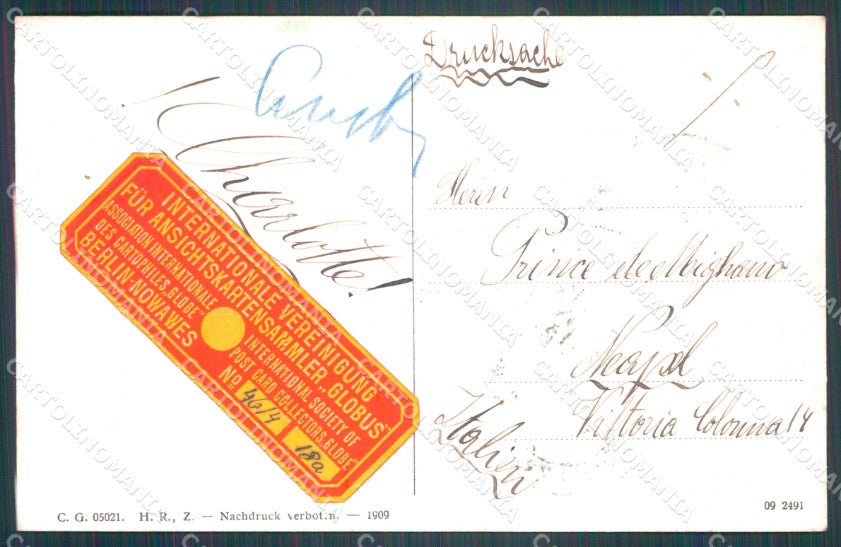 Drucksache
Charlotte!
Herrn
Prince de Mighano
Neapel
Vittoria Colonna 14
Italien
INTERNATIONALE VEREINIGUNG
FÜR ANSICHTSKARTENSAMMLER, GLOBUS
ASSOCIATION INTERNATIONALE
DES CARTOPHILES, GLOBE
BERLIN-NOWAWES
INTERNATIONAL SOCIETY OF
POST CARD COLLECTORS, GLOBE
No 4614
18a
C. G. 05021. H. R., Z. — Nachdruck verboten. — 1909
09 2491
CARTOLINOMANIA